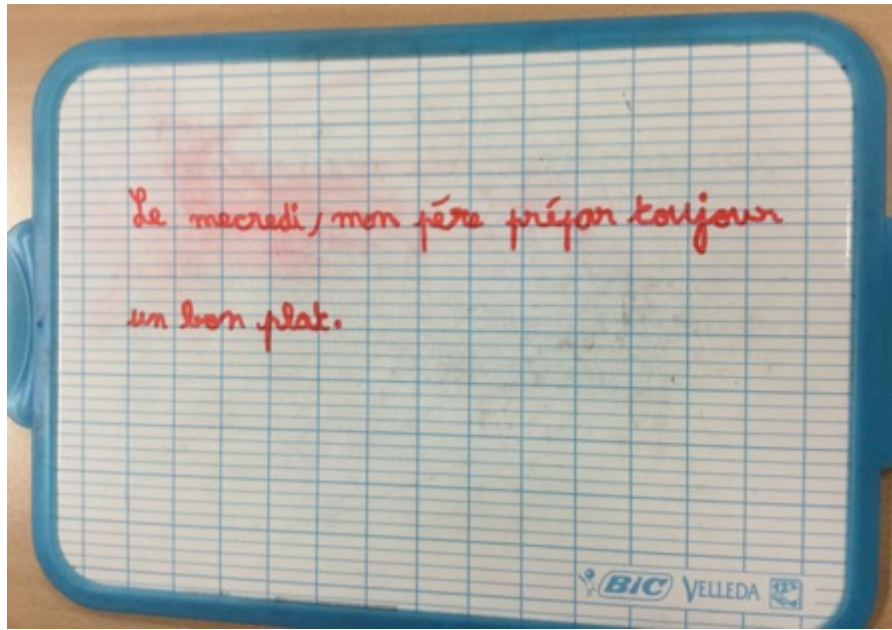 Le mecredi, mon pére prépar toujour
un bon plat.
BiC VELLEDA